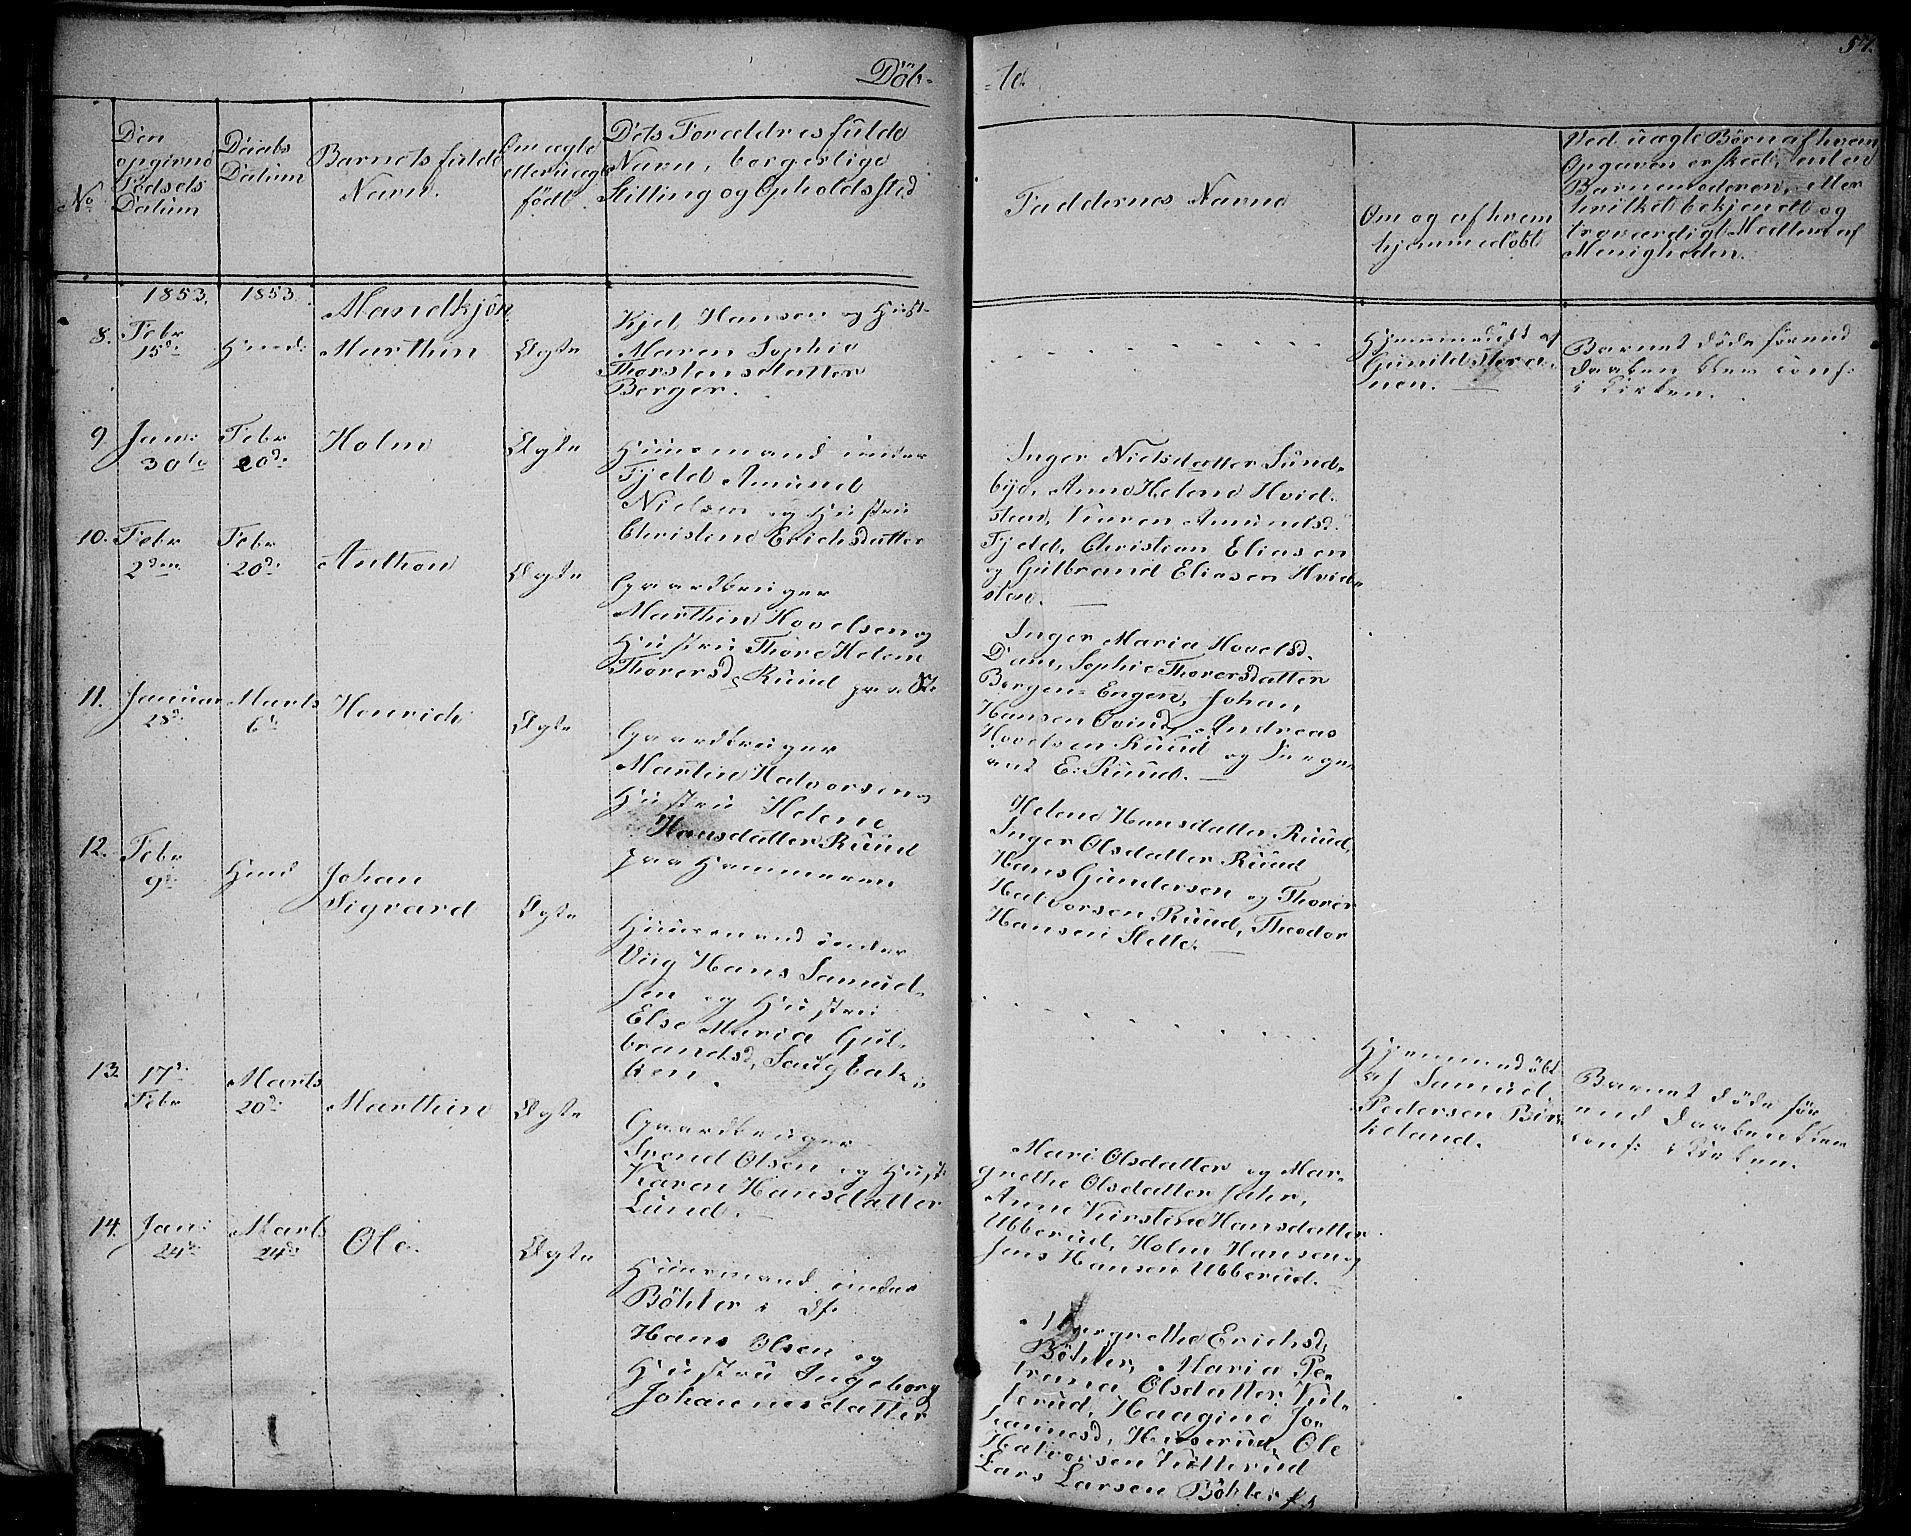 57.
Döb-
-te.
No
Den
opgivne
Födsels
Datum
Daabs
Datum
Barnets fulde
Navn.
Om ægte
eller uægte
født.
Dets Forældres fulde
Navn, borgerlige
Stilling og Opholdssted
Faddernes Navne
Om og af hvem
hjemmedöbt
Ved uægte Børn af hvem
Opgaven er skeet, enten
Barnemoderen, eller
hvilket bekjendt og
troværdigt Medlem af
Menigheden.
1853. 1853.
Mandkjøn.
8. Febr
15d:
Hjemd:
Marthin
Ægte
Kjel Hansen og Hust-
Maren Sophie
Thorstensdatter
Berger.
Hjemmedöbt af
Gunild
nen.
Barnet døde førend
Daaben blev conf:
i Kirken.
9. Jan:
30te
Febr
20d:
Holm
Ægte
Huusmand under
Fjeld Amund
Nielsen og Hustru
Christine Erichsdatter
Inger Nielsdatter Sund-
bye, Anne Helene Hvid-
sten, Karen Amundsd.
Fjeld, Christian Eliasen
og Gulbrand Eliasen Hvid-
sten.
10. Febr
2den
Febr
20d:
Anthon
Ægte
Gaardbruger
Marthin Hovelsen og
Hustru Thore Helene
Thorersd. Ruud paa
Inger Maria Hovelsd.
Dam, Sophie Thorersdatter
Borgen-Engen, Johan
Hansen Ovind, Andreas
Hovelsen Ruud og
E: Ruud.
11. Januar
28d:
Marts
6t
Henrich
Ægte
Gaardbruger
Martin Halvorsen og
Hustru Helene
Hansdatter Ruud
paa Hammeren
Helene Hansdatter Ruud,
Inger Olsdatter Ruud
Hans Gundersen og Thorer
Halvorsen Ruud, Theodor
Hansen Slette.
12. Febr
9d:
Hjmd
Johan
Sigvard
Ægte
Huusmand under
Viig Hans Samuel-
sen og Hustru
Else Maria Gul-
brandsd, Saugbak-
ken.
Hjemmedöbt
af Samuel
Pedersen Bir-
keland.
Barnet døde før-
end Daaben blev
conf: i Kirken.
13. 17d:
Febr
Marts
20d:
Marthin
Ægte
Gaardbruger
Svend Olsen og Hust:
Karen Hansdatter
Lund.
Mari Olsdatter og Mar-
grethe Olsdatter
Anne Kirstine Hansdatter
Ubberud, Holm Hansen og
Jens Hansen Ubberud.
14. Jan:
24d:
Marts
24d:
Ole.
Ægte
Huusmand under
Böhler i
Hans Olsen og
Hustru Ingeborg
Johannesdatter
Margrethe Erichsd,
Böhler, Maria Pe-
trine Olsdatter
Haagine Jo-
hannesd, Huserud, Ole
Halvorsen
Lars Larsen Böhler